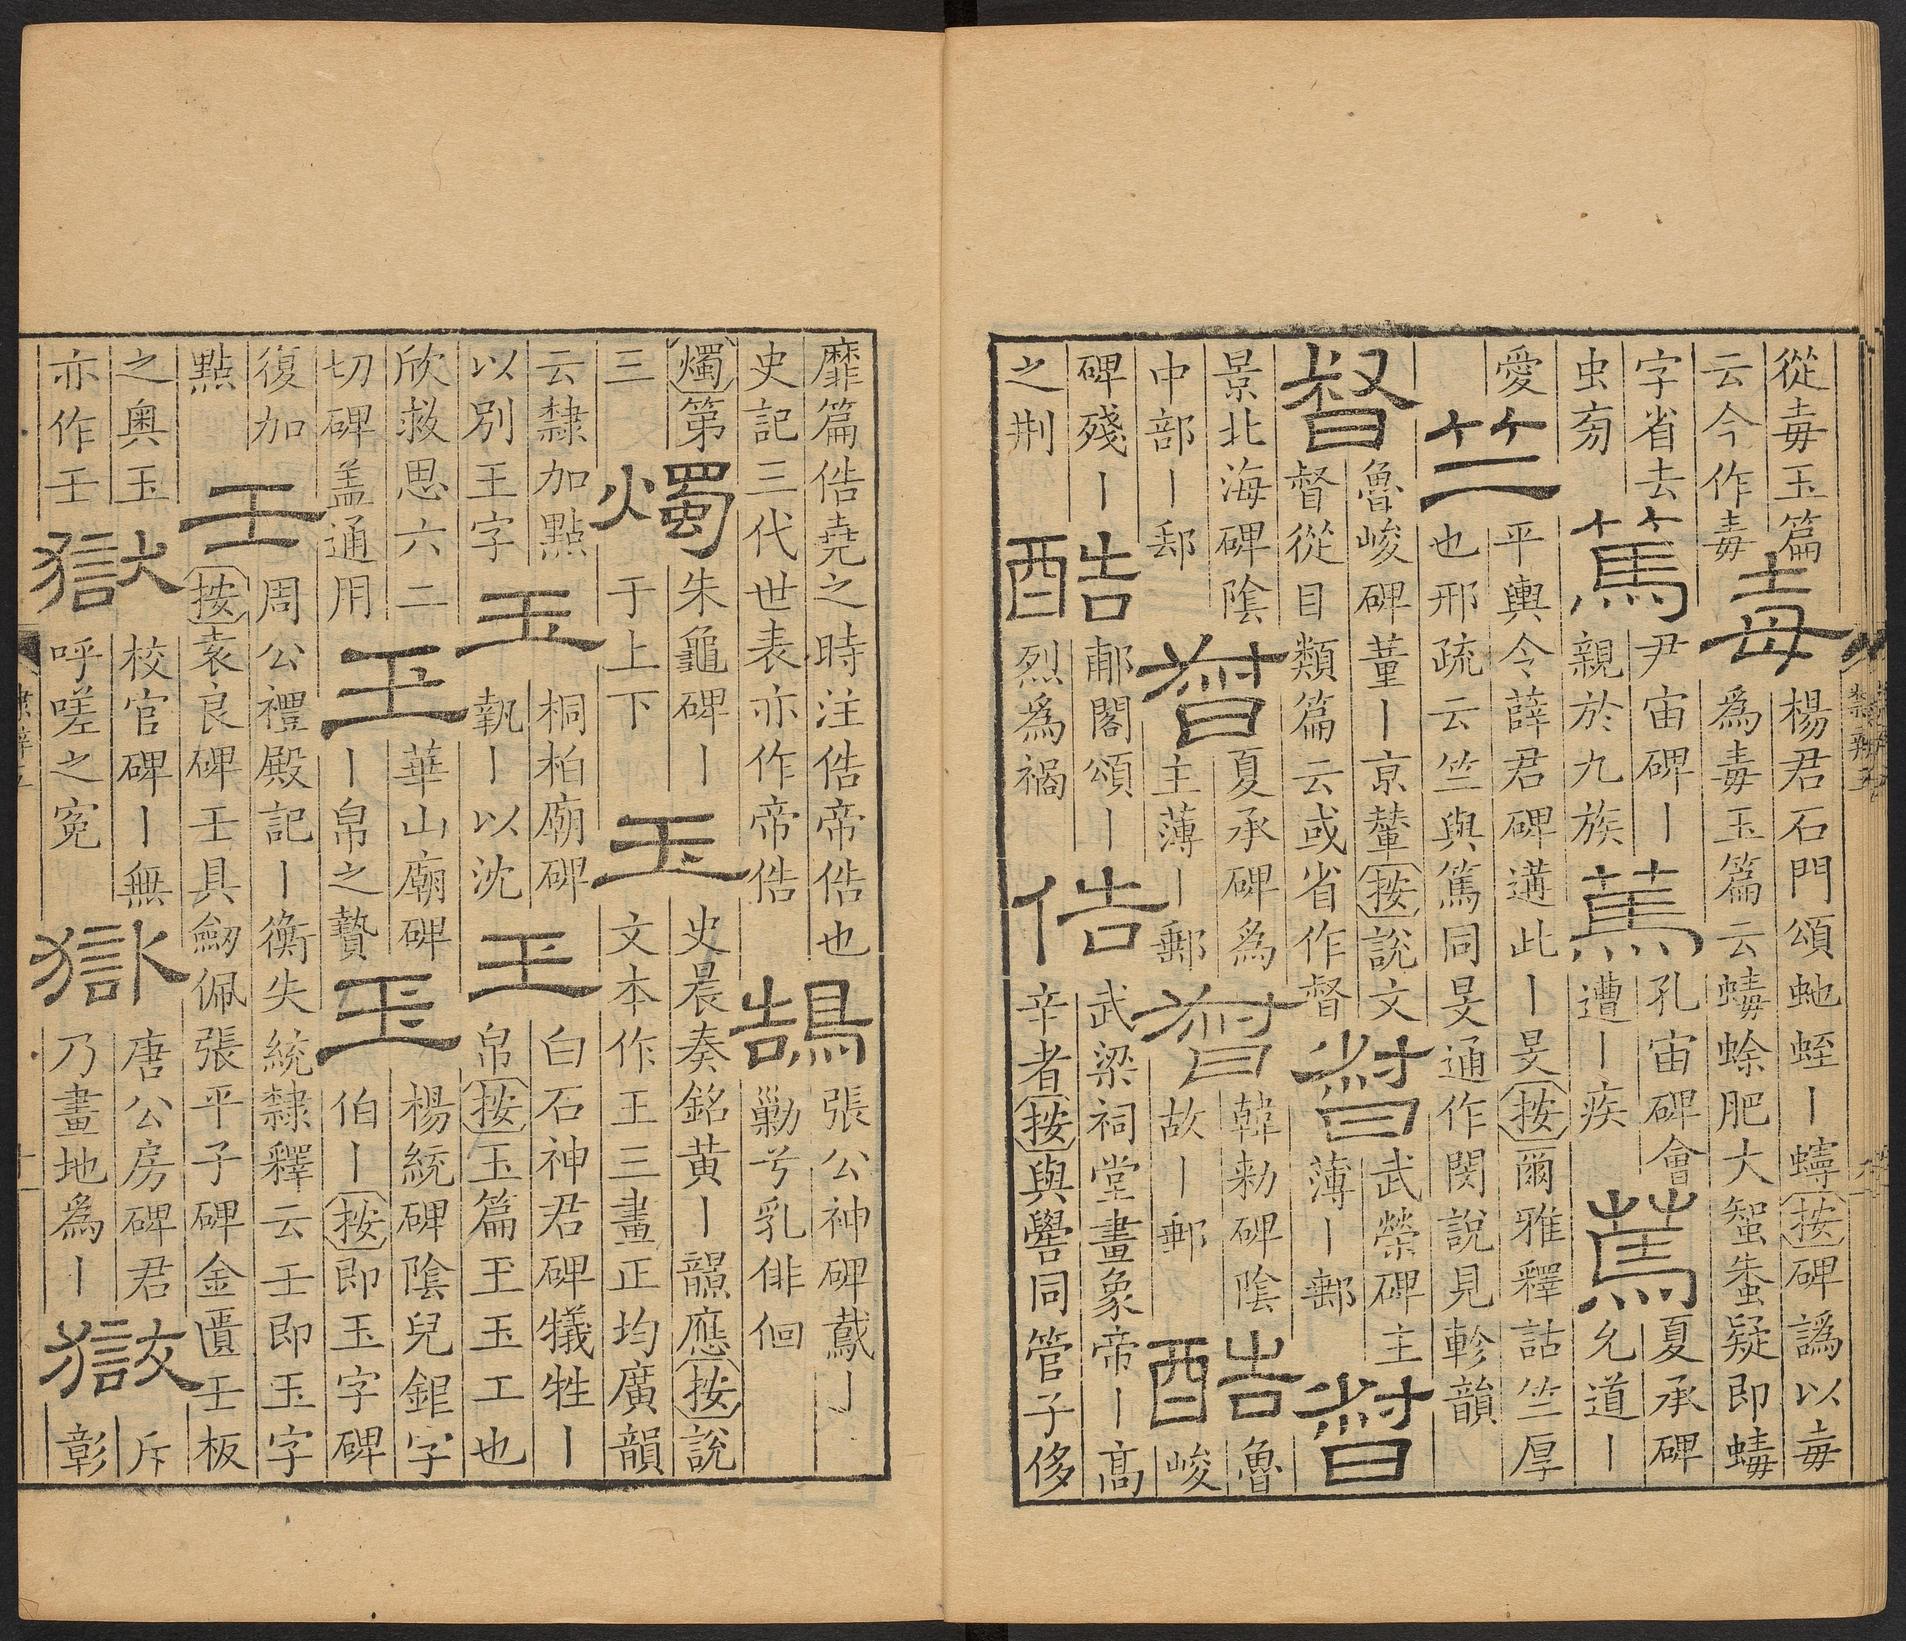 從毒玉篇
云今作毒
毒
楊君石門頌虵蛭丨蟳按碑譌以毒
為毒玉篇云蝳蜍肥大蛛疑即蝳
字省去
虫旁
篤
尹宙碑丨
親於九族
篤
孔宙碑會
遭丨疾
篤
夏承碑
允道丨
愛
竺
平輿令薛君碑遘此丨旻按爾雅釋詁竺厚
也邢疏云竺與篤同旻通作閔說見軫韻
督
魯峻碑董丨京輦按說文
督從目類篇云或省作督
督
武榮碑主
薄丨郵
督
景北海碑陰
中部丨郵
督
夏承碑為
主薄丨郵
督
韓勑碑陰
故丨郵
酷
魯
峻
碑殘丨
之荆
酷
郙閣頌丨
烈為禍
俈
武梁祠堂畫象帝丨高
辛者按與嚳同管子侈
靡篇俈堯之時注俈帝俈也
史記三代世表亦作帝俈
鵠
張公神碑鳶丨
勦兮乳俳佪
燭第
三
燭
朱龜碑丨
于上下
玉
史晨奏銘黃丨韻應按說
文本作王三畫正均廣韻
云隸加點
以別王字
玉
桐柏廟碑
執丨以沈
王
白石神君碑犧牲丨
帛按玉篇玊玉工也
欣救思六二
切碑盖通用
玊
華山廟碑
丨帛之贄
玉
楊統碑陰兒鉅字
伯丨按即玉字碑
復加
點
壬
周公禮殿記丨衡失統隸釋云壬即玉字
按袁良碑壬具劒佩張平子碑金匱壬板
之奧玉
亦作壬
獄
校官碑丨無
呼嗟之寃
獄
唐公房碑君
乃畫地為丨
獄
斥
彰